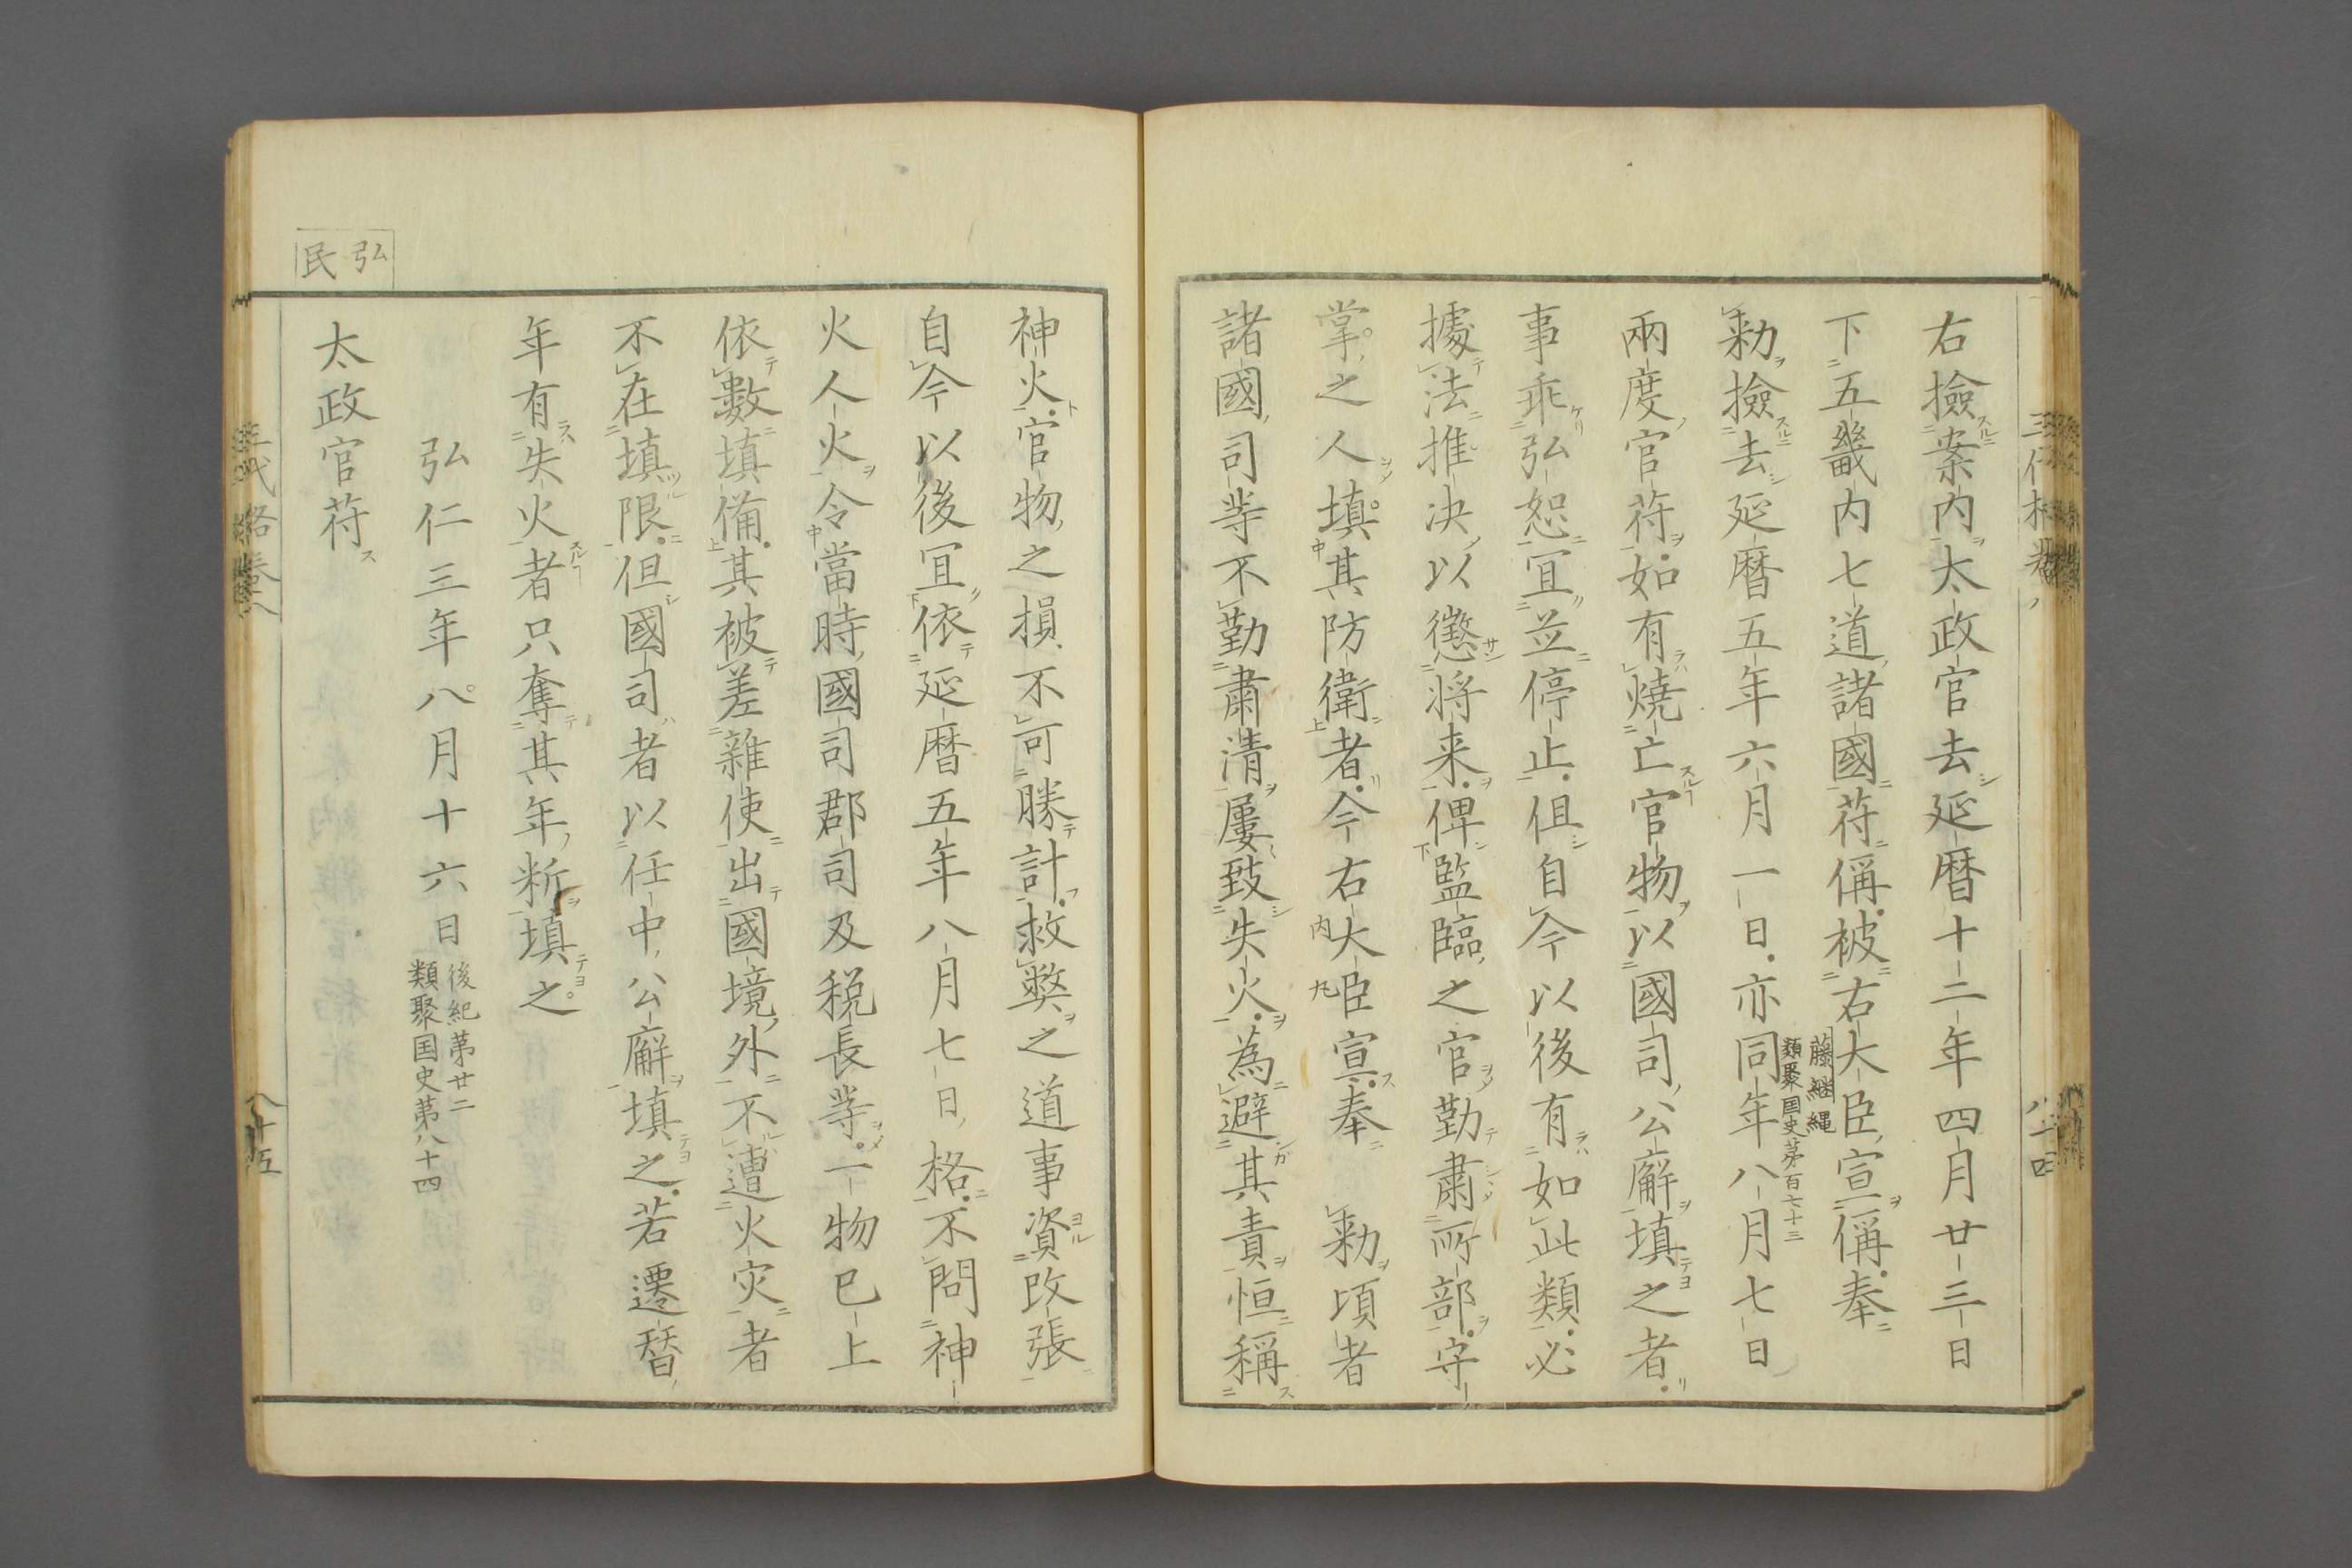 右撿案内太政官去延暦十二年四月廿三日
下五畿内七道諸國苻偁被右大臣宣偁奉
藤継縄
勅撿去延暦五年六月一日亦同年八月七日
類聚国史第百七十三
兩度官苻如有燒亡官物以國司公廨填之者
事乖弘恕冝並停止但自今以後有如此類必
據法推决以懲将来俾監臨之官勤肅所部守
掌之人填其防衛者今右大臣宣奉 勅頃者
内
諸國司等不勤肅清屢致失火為避其責恒稱
神火官物之損不可勝計救弊之道事資改張
自今以後冝依延暦五年八月七日格不問神
火人火令當時國司郡司及税長等一物已上
依數填備其被差雜使出國境外不遭火灾者
不在填限但國司者以任中公廨填之若遷替
年有失火者只奪其年断填之
弘仁三年八月十六日
後紀第廿二
類聚国史第八十四
太政官苻
弘
民
三代格卷八
八十五